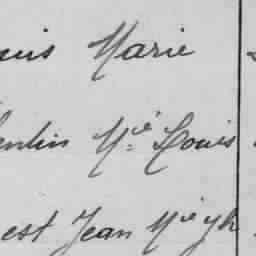 uis Marie
entin Mie Louis
est Jean Mie Jh